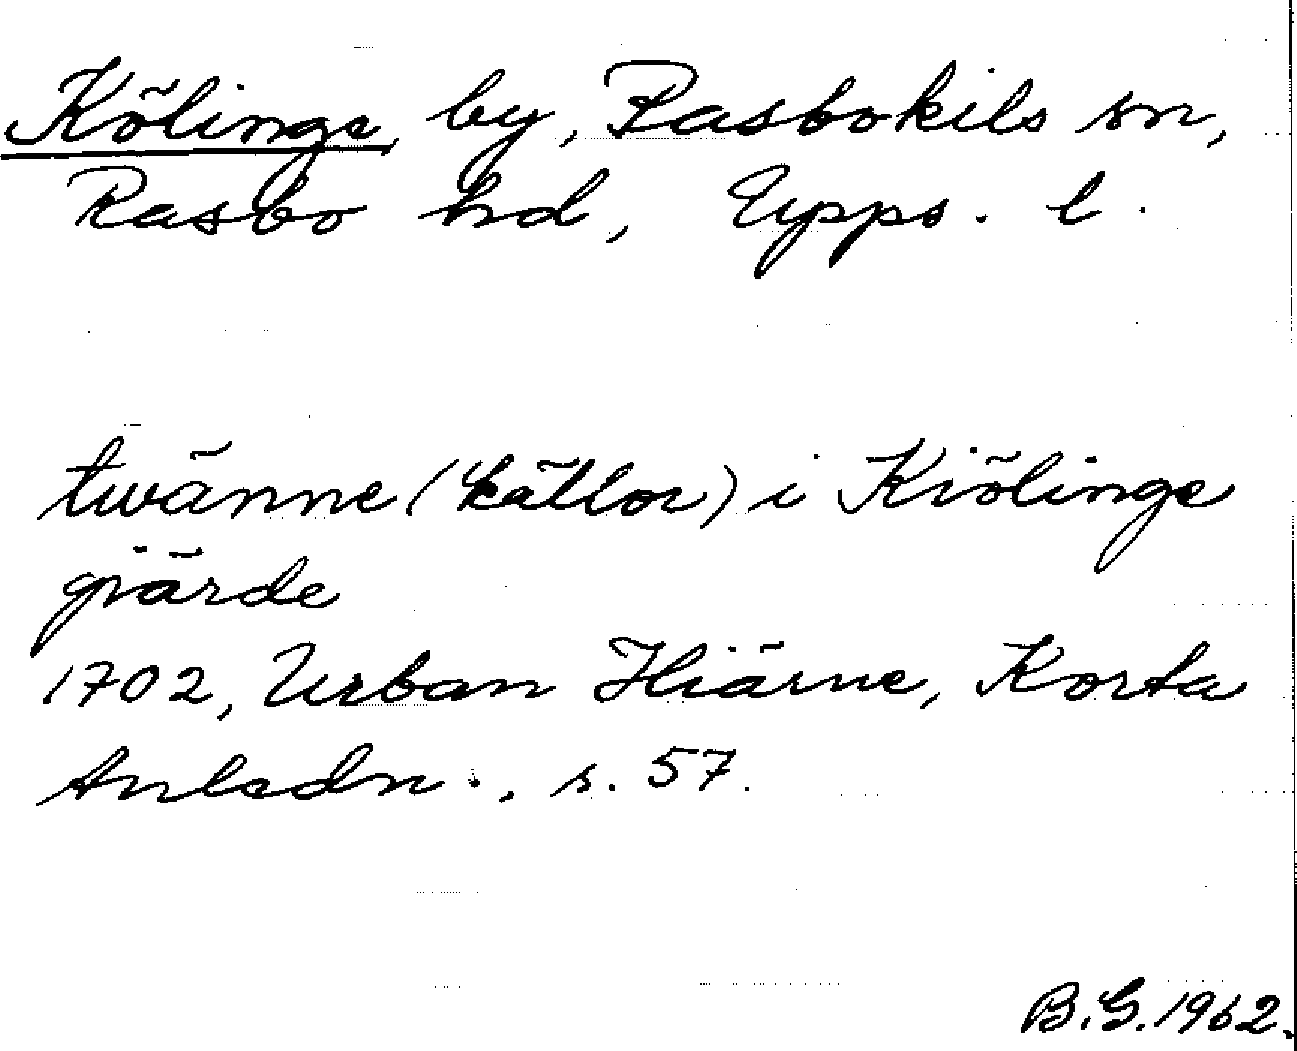 Kölinge, by, Rasbokils sn,
Rasbo hd, Upps. l.
twänne (källor) i Kiölinge
giärde
1702, Urban Hiärne, Korta
Anledn., s. 57.
B.G. 1962.